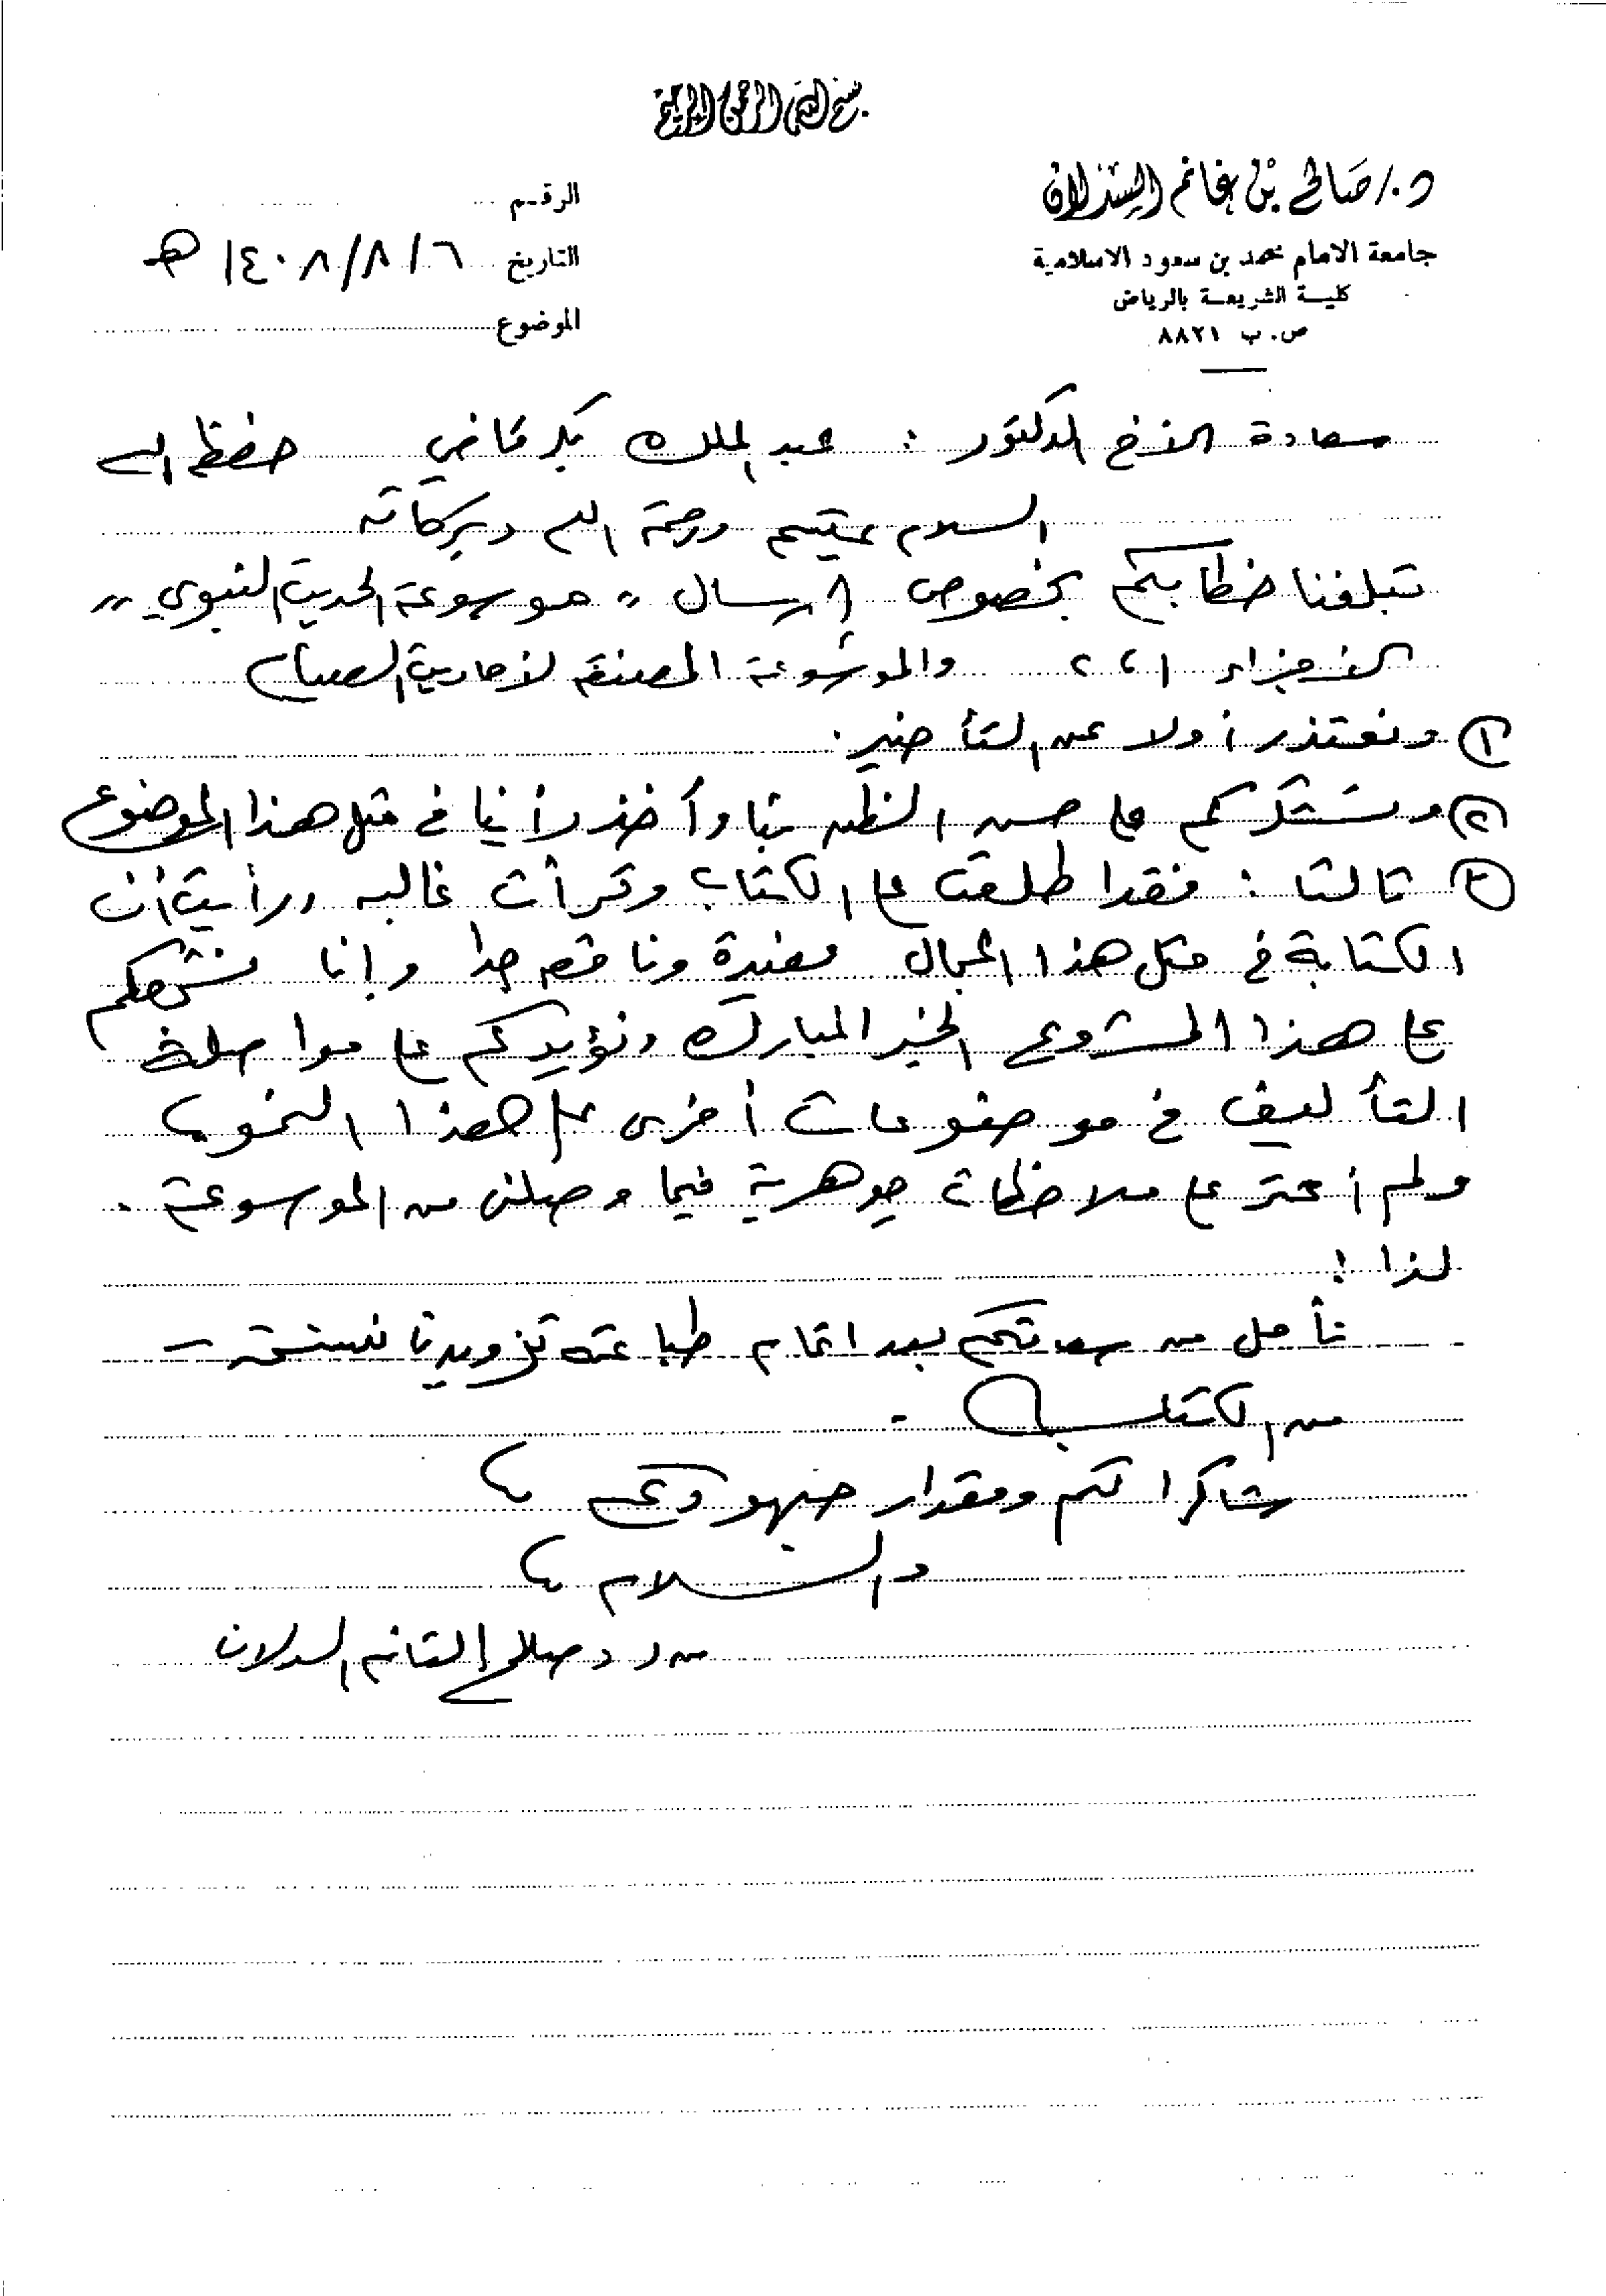 بسم الله الرحمن الرحيم
د./صالح بن غانم السدلان
جامعة الامام محمد بن سعود الاسلامية
كلية الشريعة بالرياض
ص. ب ٨٨٢١
الرقم
التاريخ ٦/٨/١٤٠٨ هـ
الموضوع
سعادة الأخ الدكتور : عبد الملك بكر قاضي حفظه الله
السلام عليكم ورحمة الله وبركاته
تبلغنا خطابكم بخصوص إرسال " موسوعة الحديث النبوي "
الأجزاء ١، ٢ والموسوعة المصنفة لأحاديث الصيام
(١) ونعتذر أولا عن التأخير .
(٢) ونشكركم على حسن الظن بنا وأخذ رأينا في مثل هذا الموضوع
(٣) ثالثا : فقد اطلعت على الكتاب وقرأت غالبه ورأيت أن
الكتابة في مثل هذا المجال مفيدة ونافعه جدا وإنا نشجعكم
على هذا المشروع الخير المبارك ونؤيدكم على مواصلة
التأليف في موضوعات أخرى على هذا النحو
ولم أعثر على ملاحظات جوهرية فيما وصلني من الموسوعة .
لذا :
نأمل من سعادتكم بعد اتمام طباعته تزويدنا بنسخة
من الكتاب .
شاكرا لكم ومقدار جهودكم
والسلام
د صالح الغانم السدلان